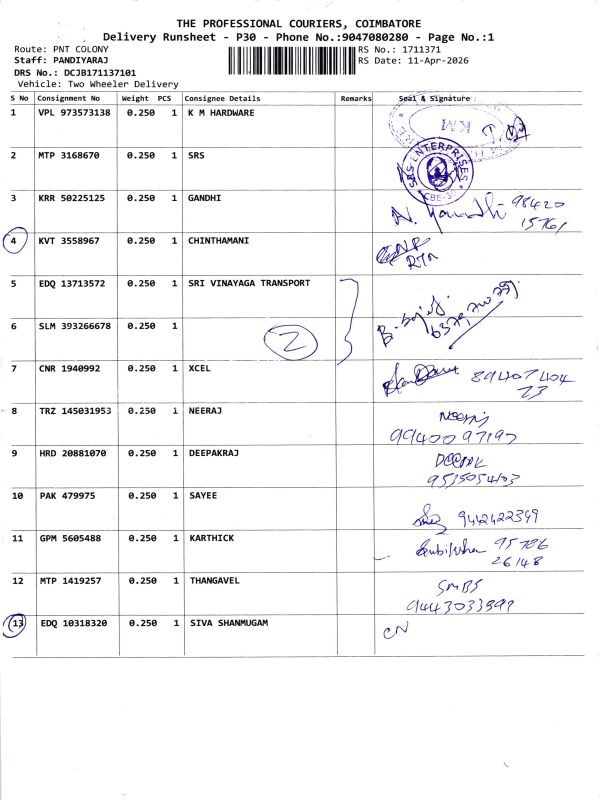 THE PROFESSIONAL COURIERS, COIMBATORE
Delivery Runsheet - P30 - Phone No.:9047080280 - Page No.:1
Route: PNT COLONY
RS No.: 1711371
Staff: PANDIYARAJ
RS Date: 11-Apr-2026
DRS No.: DCJB171137101
Vehicle: Two Wheeler Delivery
S No Consignment No Weight PCS Consignee Details Remarks Seal & Signature
1 VPL 973573138 0.250 1 K M HARDWARE
KM
2 MTP 3168670 0.250 1 SRS
SRS ENTERPRISES
CBE-30
3 KRR 50225125 0.250 1 GANDHI
98420
15761
4 KVT 3558967 0.250 1 CHINTHAMANI
NR
RTN
5 EDQ 13713572 0.250 1 SRI VINAYAGA TRANSPORT
6 SLM 393266678 0.250 1
2
7 CNR 1940992 0.250 1 XCEL
89407404
23
8 TRZ 145031953 0.250 1 NEERAJ
Neeraj
9940097197
9 HRD 20881070 0.250 1 DEEPAKRAJ
Deepak
10 PAK 479975 0.250 1 SAYEE
9442422349
11 GPM 5605488 0.250 1 KARTHICK
95786
26148
12 MTP 1419257 0.250 1 THANGAVEL
SMBS
9443033399
13 EDQ 10318320 0.250 1 SIVA SHANMUGAM
CN